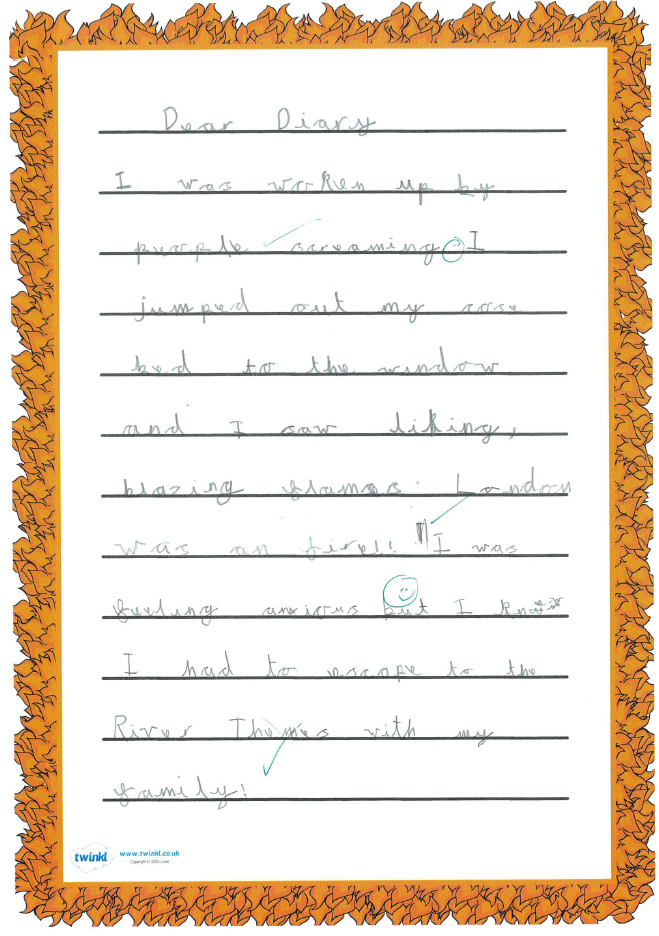 Dear Diary
I was waken up by
people screaming. I
jumped out my cose
bed to the window
and I saw liking,
blazing flames. London
was on fire!! I was
feeling anxious but I know
I had to escape to the
River Themes with my
family!
twinkl www.twinkl.co.uk